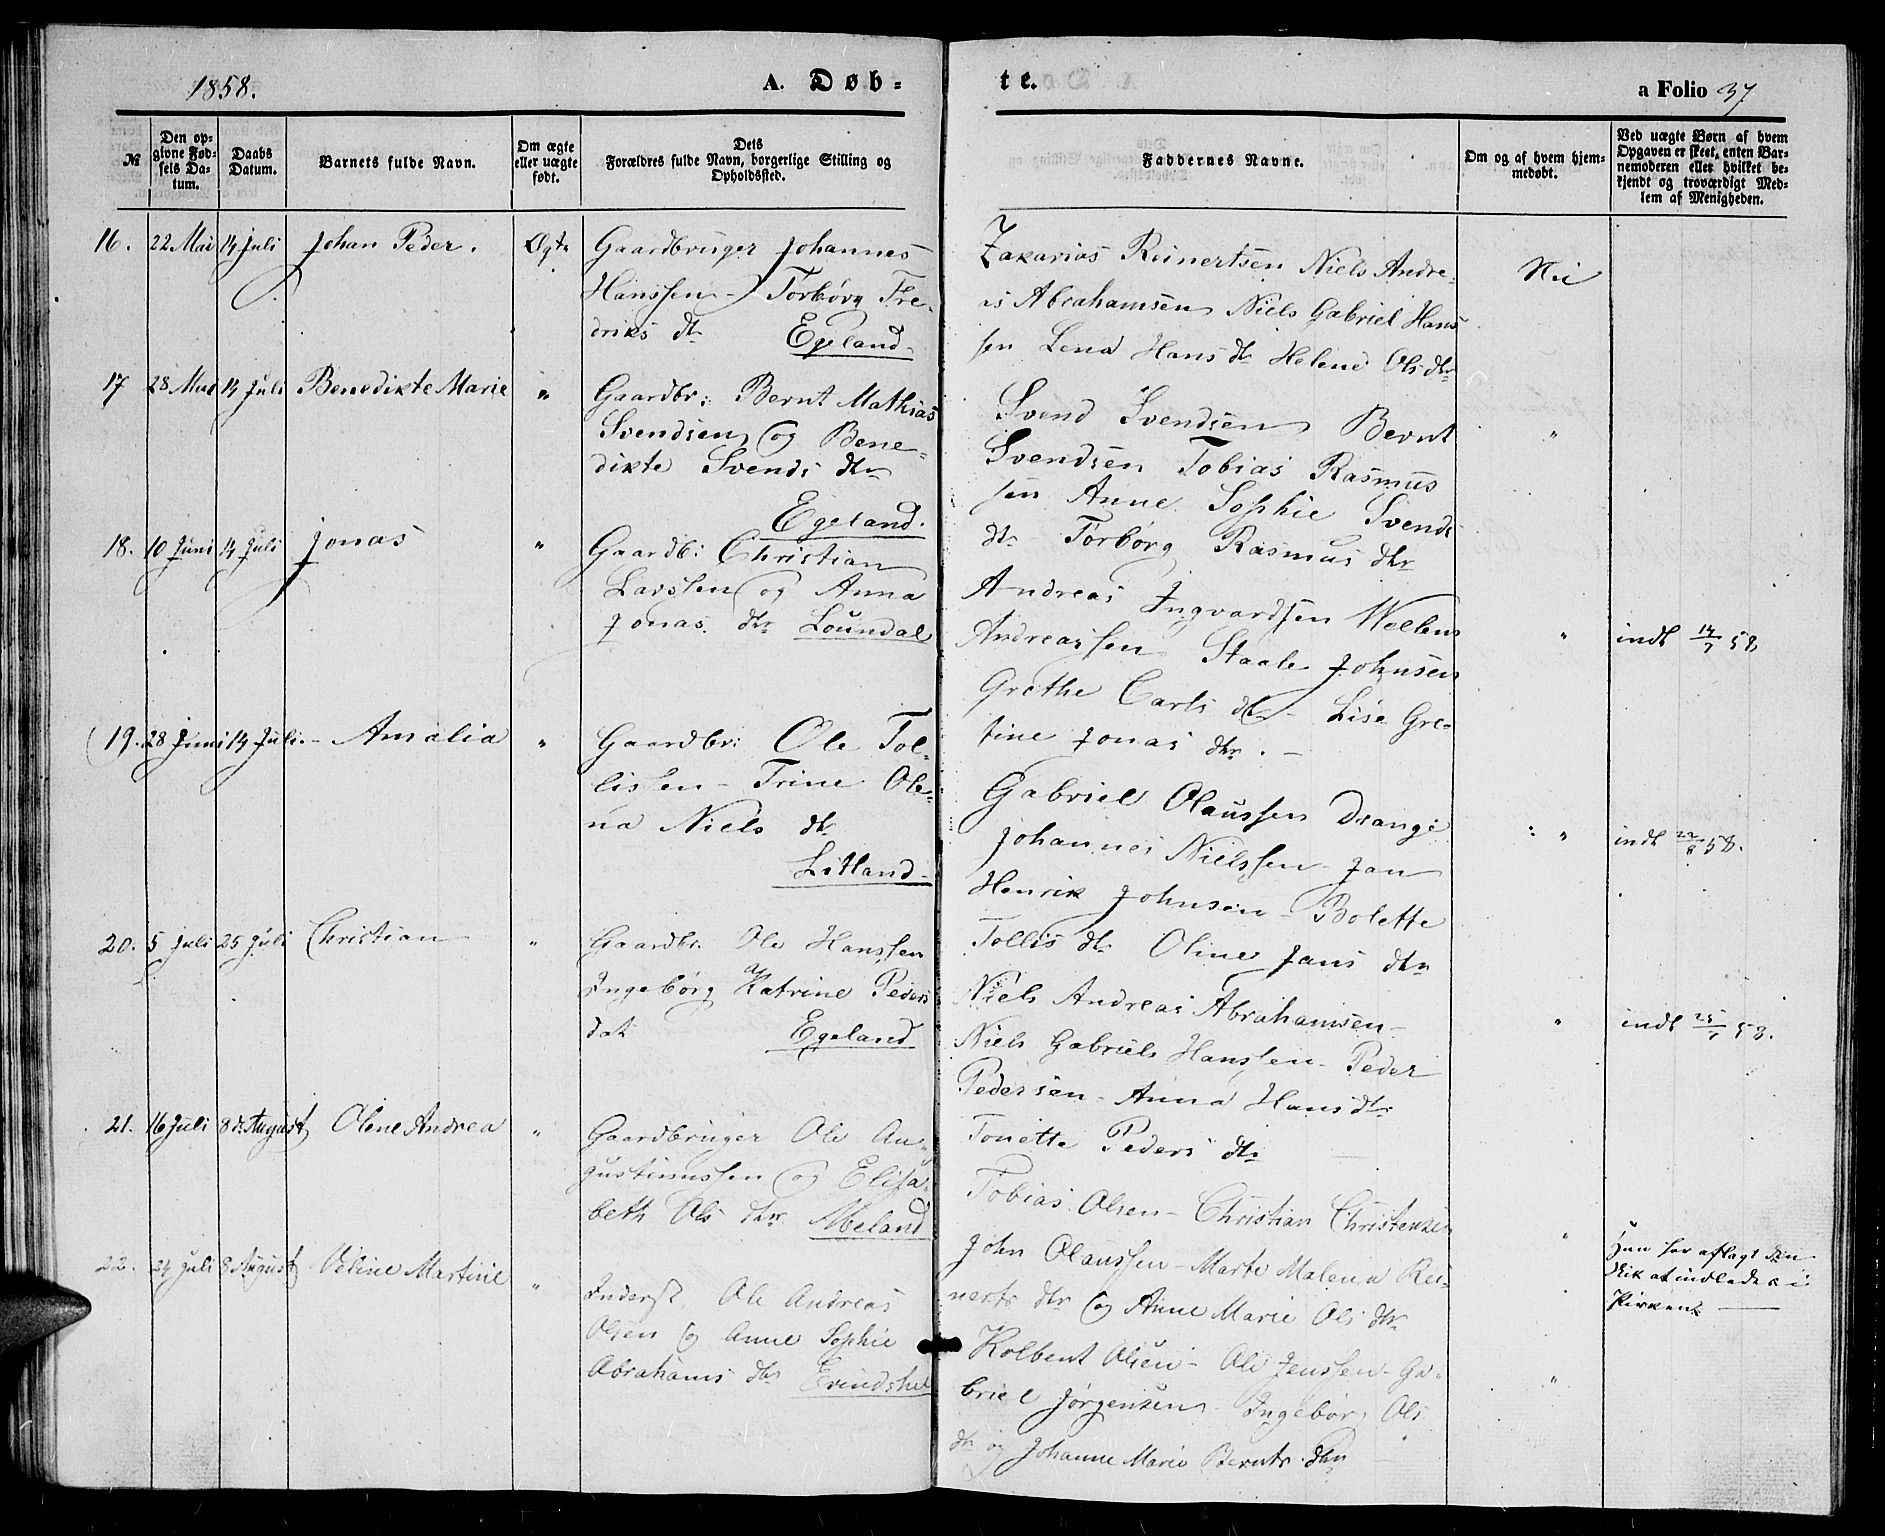 1858.
A. Døb-
te.
a Folio 37
№
Den op-
givne Fød-
sels Da-
tum.
Daabs
Datum.
Barnets fulde Navn.
Om ægte
eller uægte
født.
Dets
Forældres fulde Navn, borgerlige Stilling og
Opholdssted.
Faddernes Navne.
Om og af hvem hjem-
medøbt.
Ved uægte Børn af hvem
Opgaven er skeet, enten Bar-
nemoderen eller hvilket be-
kjendt og troværdigt Med-
lem af Menigheden.
16. 22 Mai 14 Juli Johan Peder. Ægte
Gaardbruger Johannes
Hanssen - Torbørg Fre-
driks dtr
Egeland -
Zakarias Reinertsen Niels Andre-
as Abrahamsen Niels Gabriel Hans
sen Lena Hans dtr Helene Ols dtr
Nei
17 28 Mai 14 Juli Benedikte Marie "
Gaardbr: Bernt Mathias
Svendsen og Bene-
dikte Svends dtr
Egeland.
Svend Svendsen Bernt
Svendsen Tobias Rasmus
sen Anne Sophie Svends
dtr - Torbørg Rasmus dtr
"
18. 10 Juni 14 Juli Jonas "
Gaardb: Christian
Larssen og Anna
Jonas dtr Loundal
Andreas Ingvardsen Wellem
Andreassen Staale Johnsen
Grethe Carls dtr - Lise Gre-
tine Jonas dtr. -
" indl 14/7 58,
19. 28 Juni 14 Juli. - Amalia "
Gaardbr: Ole Tol-
lissen - Trine Ole-
na Niels dtr
Litland -
Gabriel Olaussen Drange
Johannes Nielssen - Jan
Henrik Johnsen - Bolette
Tollis dtr Oline Jans dtr
" indl 22/8 58.
20. 5 Juli 25 Juli Christian "
Gaardbr: Ole Hanssen
og
Ingebørg Katrine Peders
dat Egeland
Niels Andreas Abrahamsen -
Niels Gabriels Hanssen - Peder
Pedersen - Anna Hansdtr
Tonette Peders dtr
" indl 25/7 58.
21. 16 Juli 8de August Olene Andrea "
Gaardbruger Ole Au-
gustinussen og Elisa-
beth Ols dtr Abeland
Tobias Olsen - Christian Christensen
John Olaussen - Marte Malena Rei-
nerts dtr og Anne Marie Ols dtr
"
Hun har aflagt den
Skik at indledes i
Kirken -
22. 24 Juli 8 August Veline Martine "
Inderst Ole Andreas
Olsen og Anne Sophie
Abrahams dtr
Kolbent Olsen - Ole Jenssen - Ga-
briel Jørgensen - Ingebør Ols
dtr og Johanne Marie Bernts dtr
"